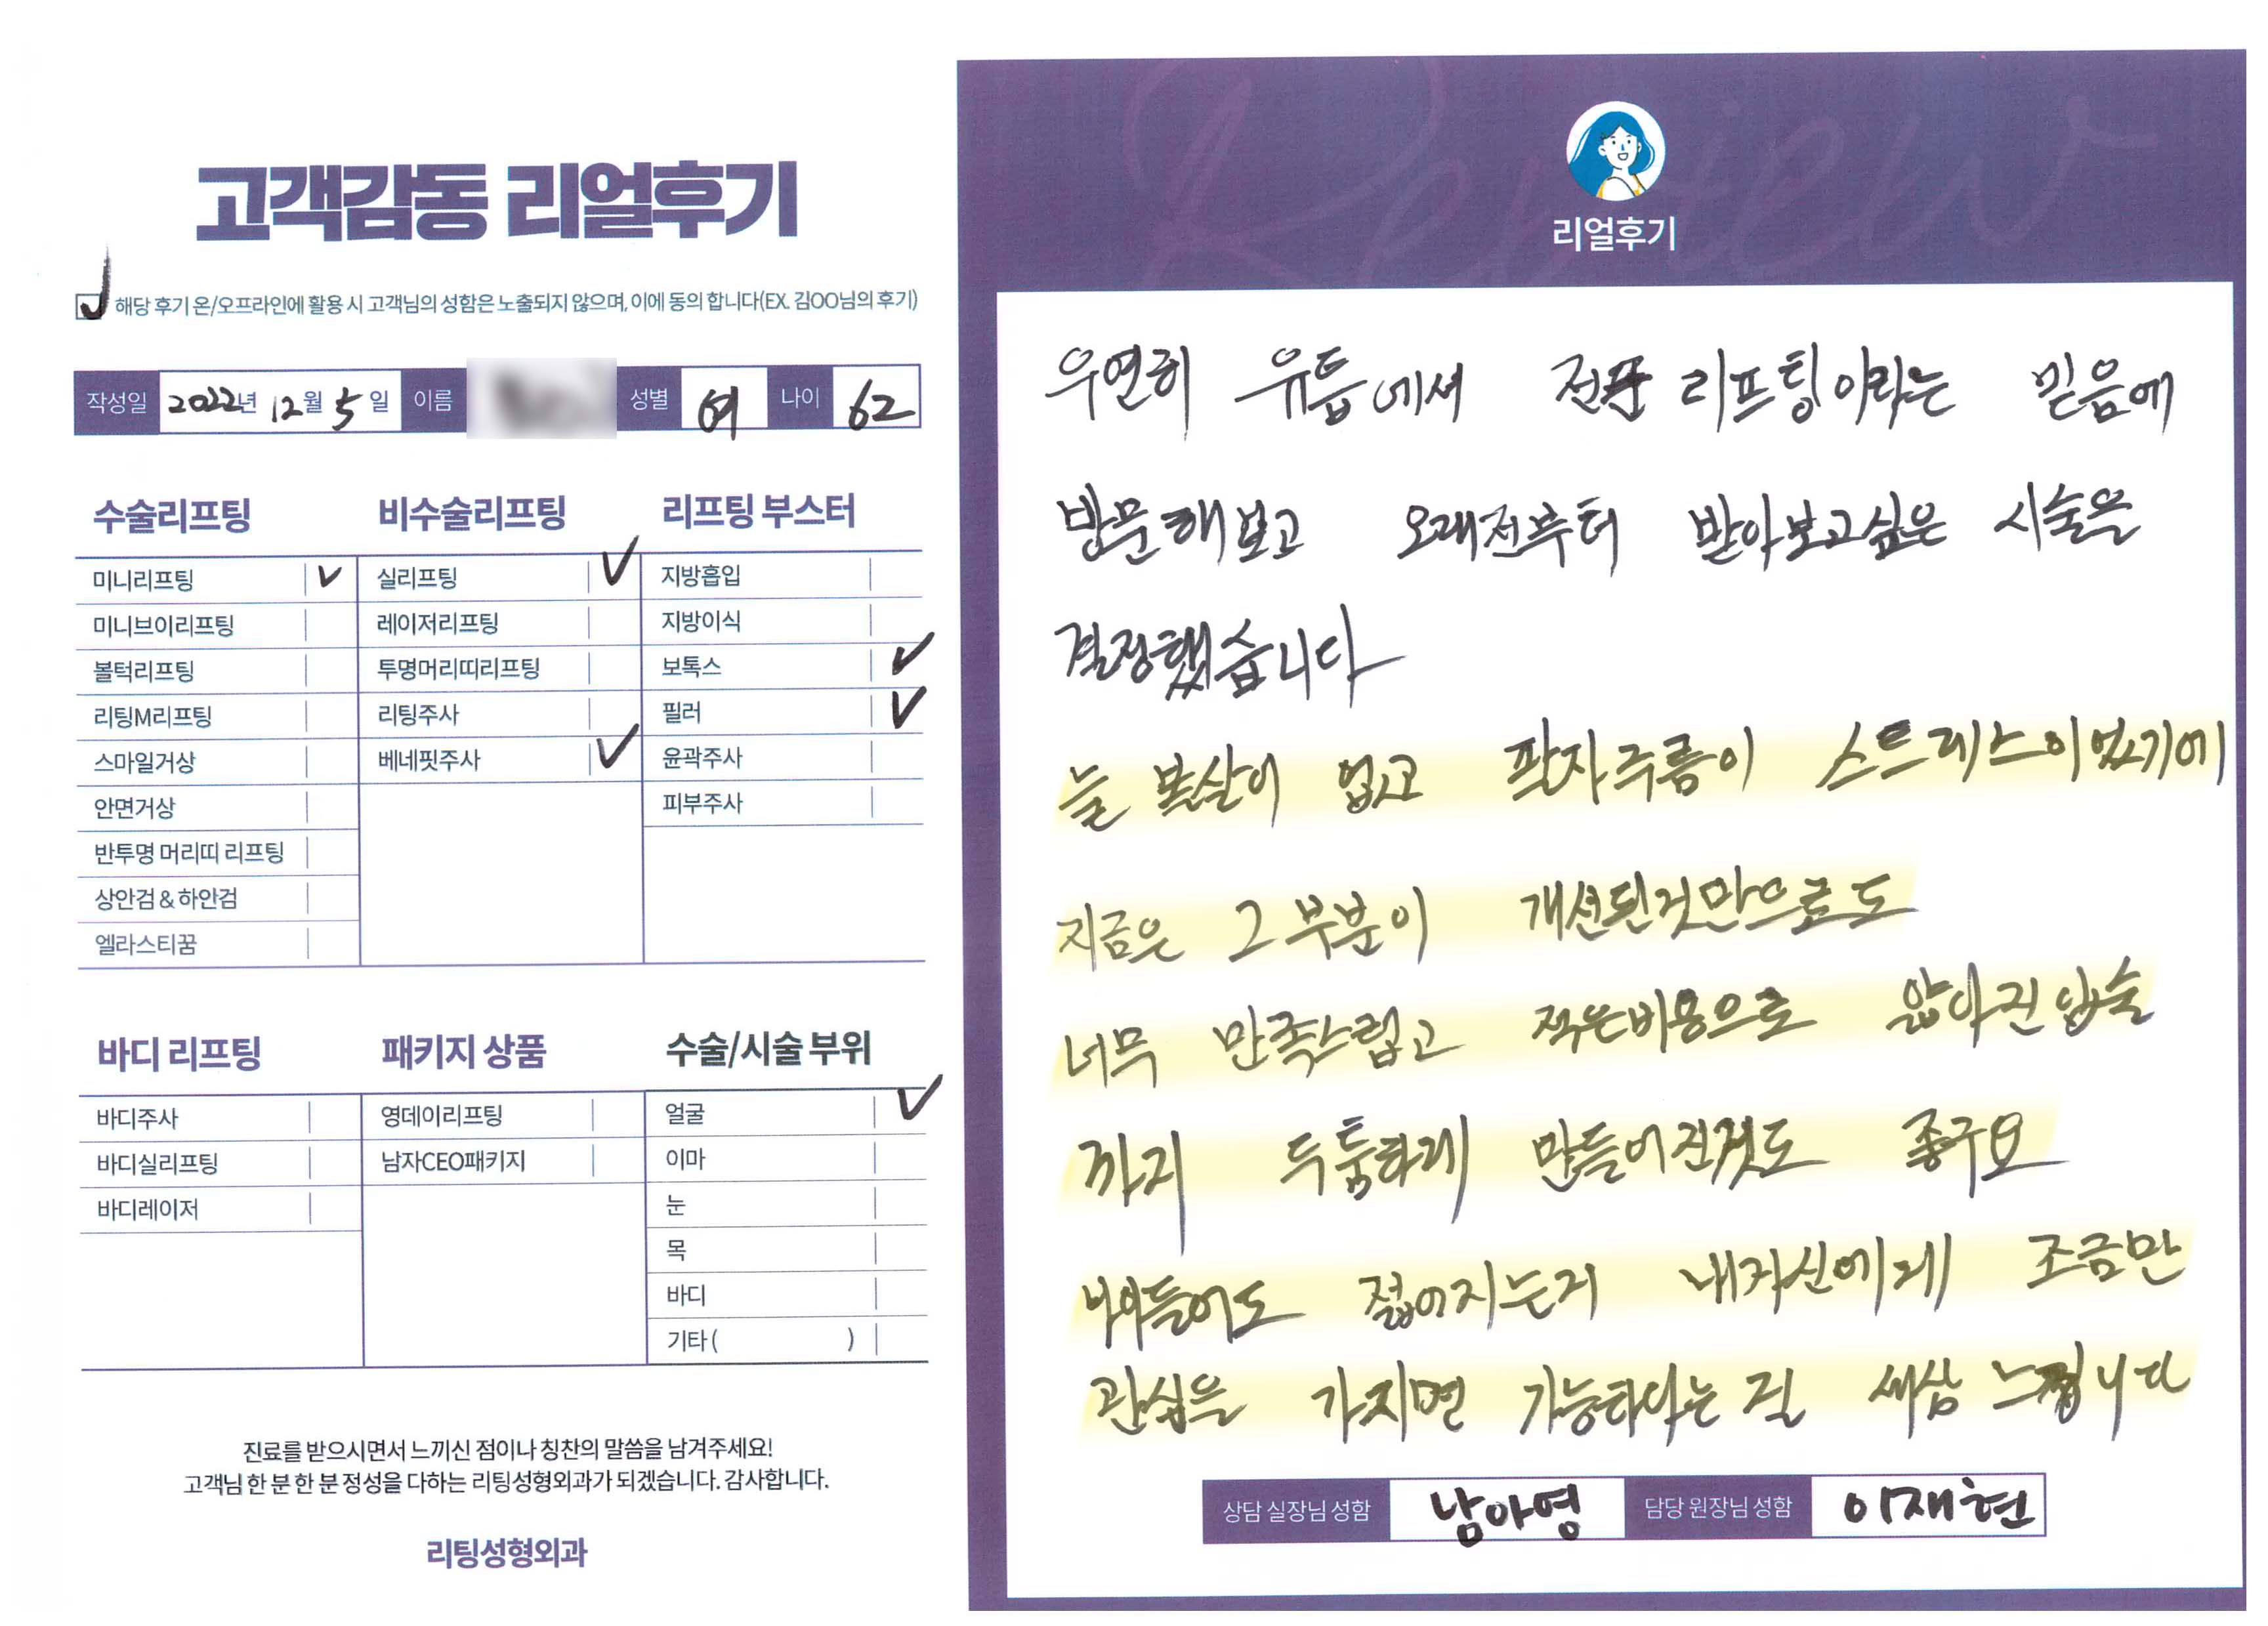 고객감동 리얼후기
해당 후기 온/오프라인에 활용 시 고객님의 성함은 노출되지 않으며, 이에 동의 합니다(EX. 김OO님의 후기)
작성일 2022년 12월 5일 이름 성별 여 나이 62
수술리프팅
미니리프팅
미니브이리프팅
볼턱리프팅
리팅M리프팅
스마일거상
안면거상
반투명 머리띠 리프팅
상안검 & 하안검
엘라스티꿈
비수술리프팅
실리프팅
레이저리프팅
투명머리띠리프팅
리팅주사
베네핏주사
리프팅 부스터
지방흡입
지방이식
보톡스
필러
윤곽주사
피부주사
바디 리프팅
바디주사
바디실리프팅
바디레이저
패키지 상품
영데이리프팅
남자CEO패키지
수술/시술 부위
얼굴
이마
눈
목
바디
기타 ( )
진료를 받으시면서 느끼신 점이나 칭찬의 말씀을 남겨주세요!
고객님 한 분 한 분 정성을 다하는 리팅성형외과가 되겠습니다. 감사합니다.
리팅성형외과
Review
리얼후기
우연히 유튭에서 전문 리프팅이라는 믿음에
방문해보고 오래전부터 받아보고싶은 시술을
결정했습니다
늘 볼살이 없고 팔자주름이 스트레스이었기에
지금은 그 부분이 개선된것만으로도
너무 만족스럽고 적은비용으로 얇아진 입술
까지 두툼하게 만들어진것도 좋구요
나이들어도 젊어지는거 내자신에게 조금만
관심을 가지면 가능하다는 걸 새삼 느낍니다
상담 실장님 성함 남아영 담당 원장님 성함 이재현